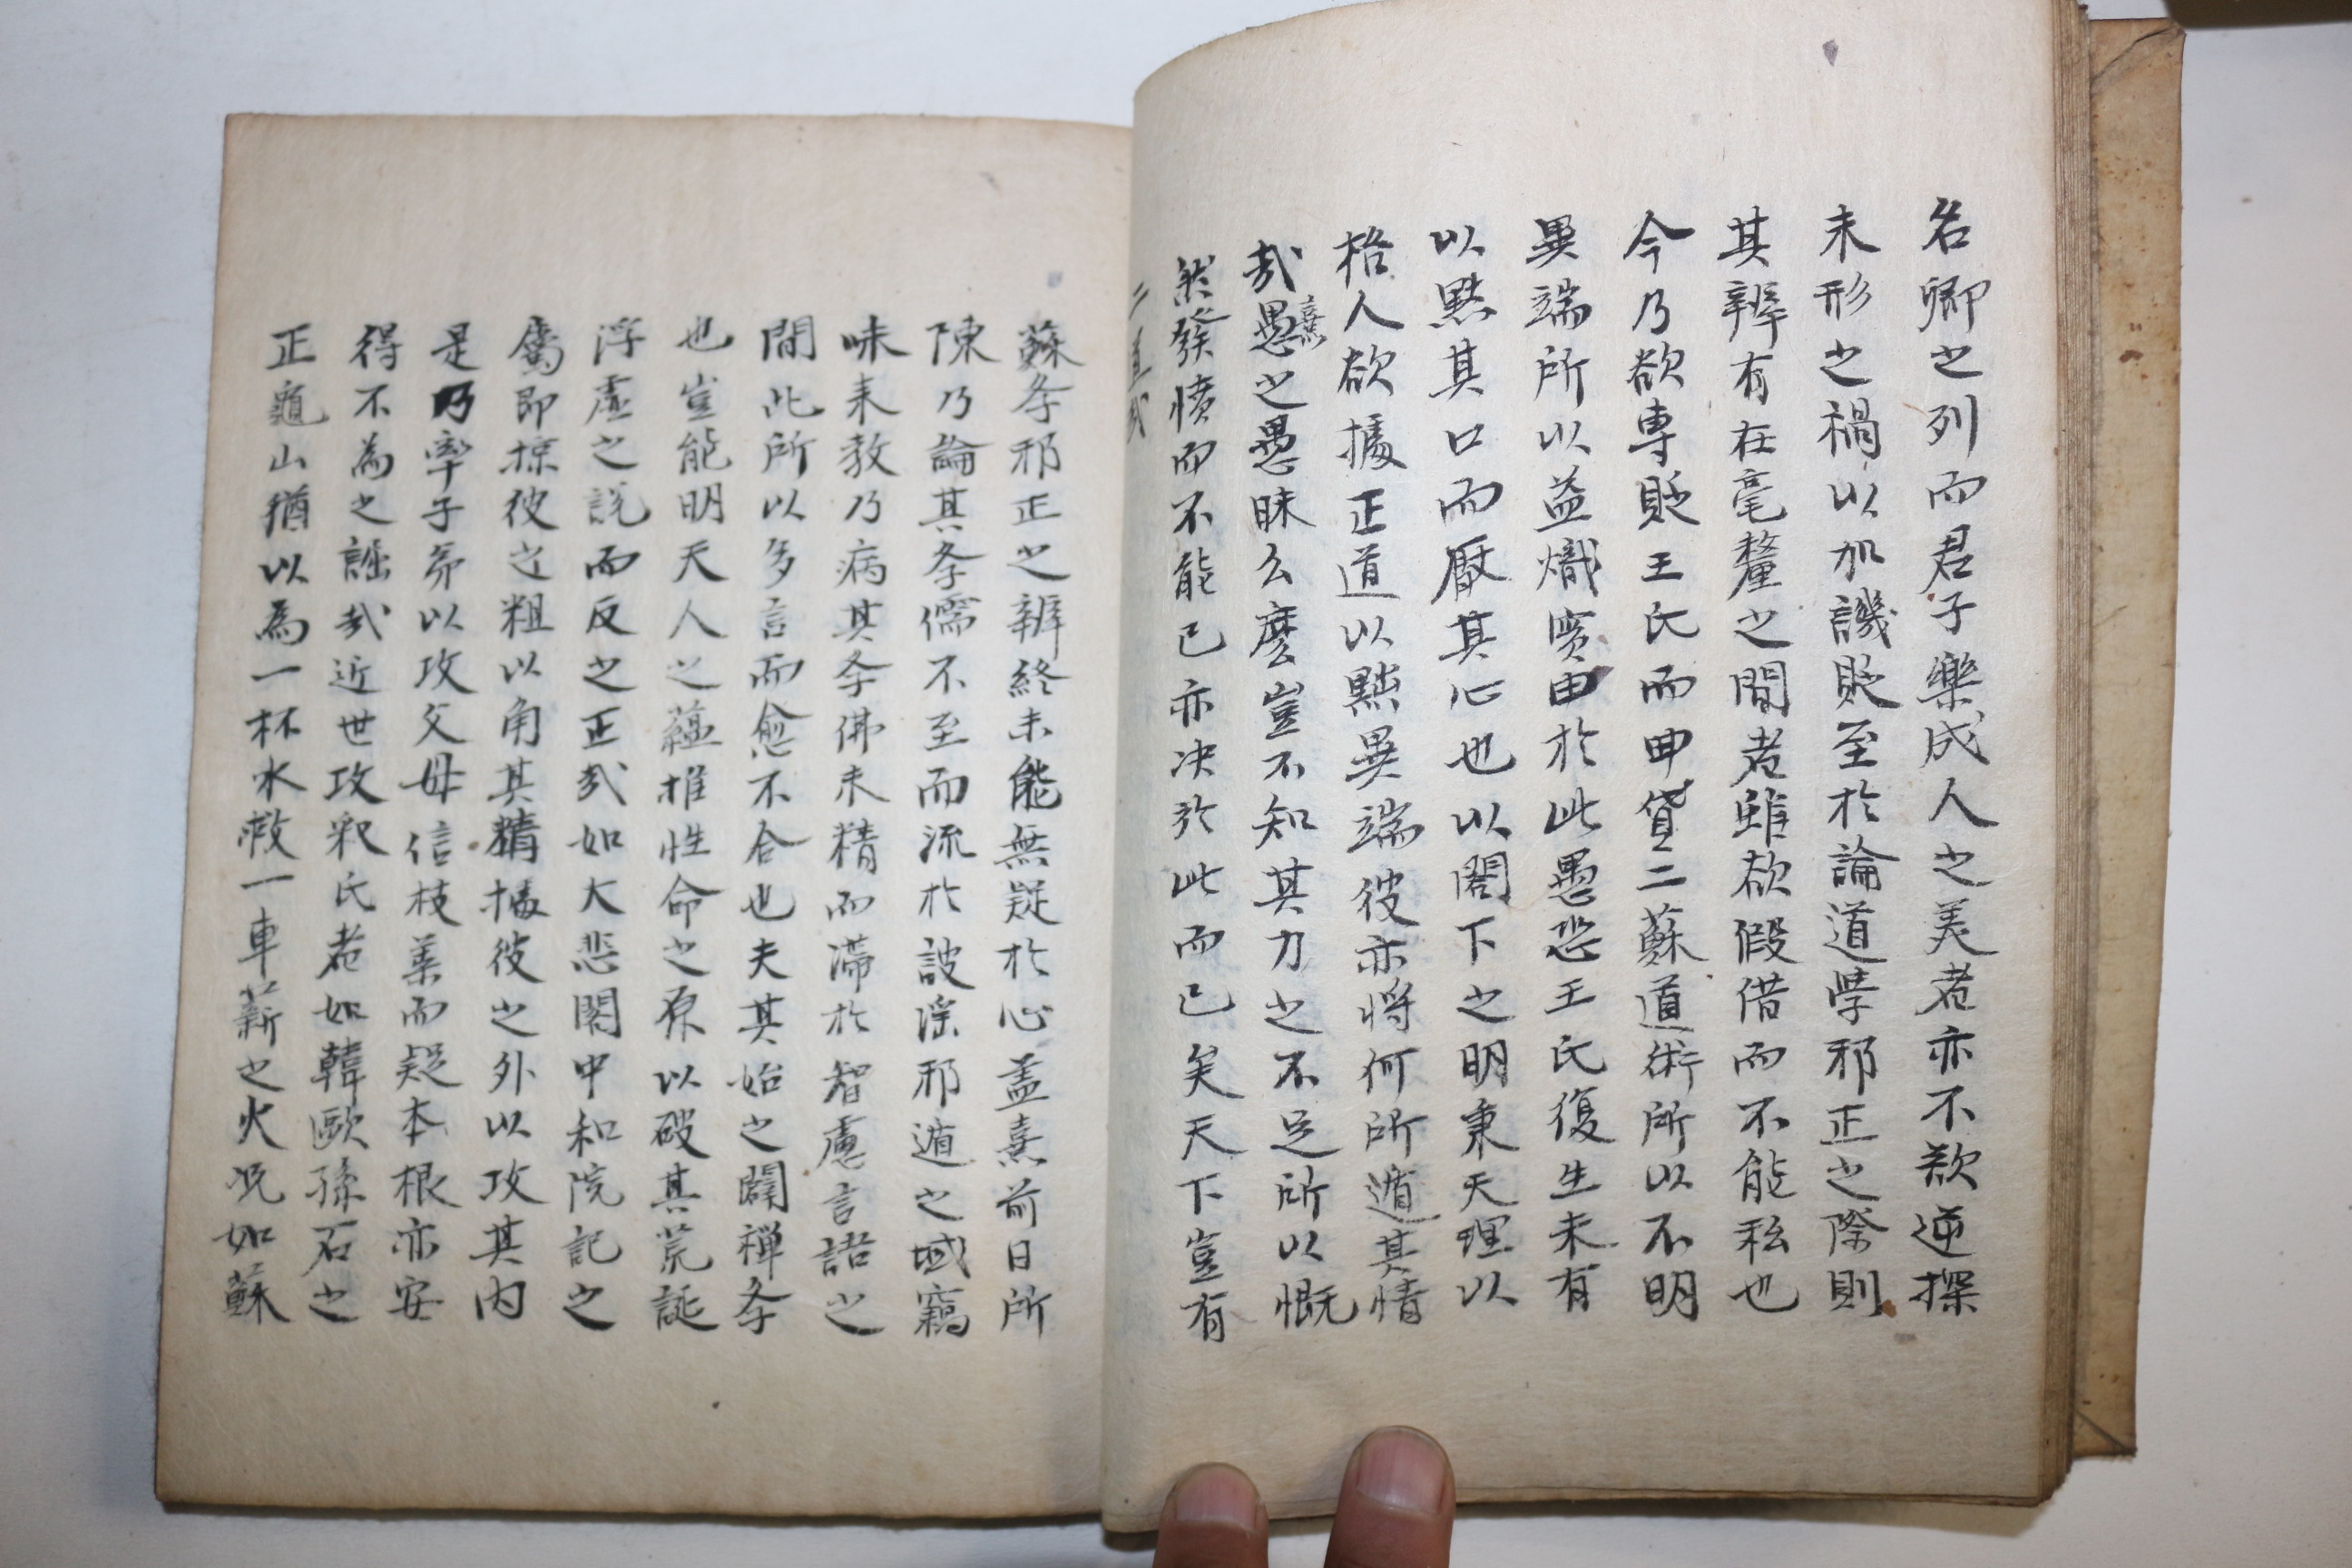 名卿之列而君子樂成人之美者亦不欲逆探
未形之禍以加譏貶至於論道學邪正之際則
其辨有在毫釐之間者雖欲假借而不能私也
今乃欲專貶王氏而曲貸二蘇道術所以不明
異端所以益熾實由於此愚恐王氏復生未有
以默其口而厭其心也以閤下之明秉天理以
格人欲據正道以黜異端彼亦將何所遁其情
哉愚熹之愚昧么麼豈不知其力之不足所以慨
然發憤而不能已亦决於此而已矣天下豈有
二道哉
蘇李邪正之辨終未能無疑於心盖熹前日所
陳乃論其李儒不至而流於詖淫邪遁之域竊
味来教乃病其李佛未精而滯於智慮言語之
間此所以多言而愈不合也夫其始之闢禪李
也豈能明天人之蘊推性命之原以破其荒誕
浮虛之説而反之正哉如大悲閣中和院記之
屬即掠彼之粗以角其精據彼之外以攻其内
是乃率子弟以攻父母信枝葉而疑本根亦安
得不為之詘哉近世攻釈氏者如韓歐孫石之
正龜山猶以為一杯水救一車薪之火况如蘇